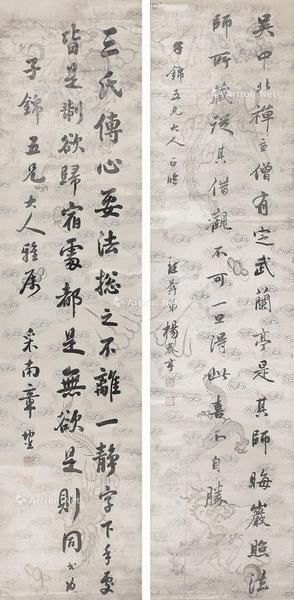 吳中北禪主僧有定武蘭亭是其師晦巖照法
師所藏從其借觀不可一旦得此喜不自勝
子錦五兄大人正
弟楊泰亨
三氏傳心要法總之不離一靜字下手處
皆是制欲歸宿處都是無欲是則同 書為
子錦五兄大人雅屬 采南章鋆